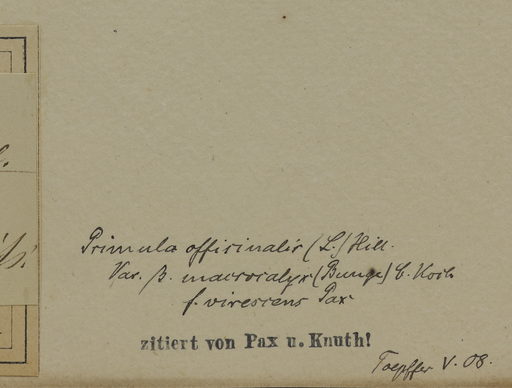 Primula officinalis (L.) Hill.
Var. β. macrocalyx (Bunge) C. Koch
f. virescens Pax
zitiert von Pax u. Knuth!
Toepffer V. 08.